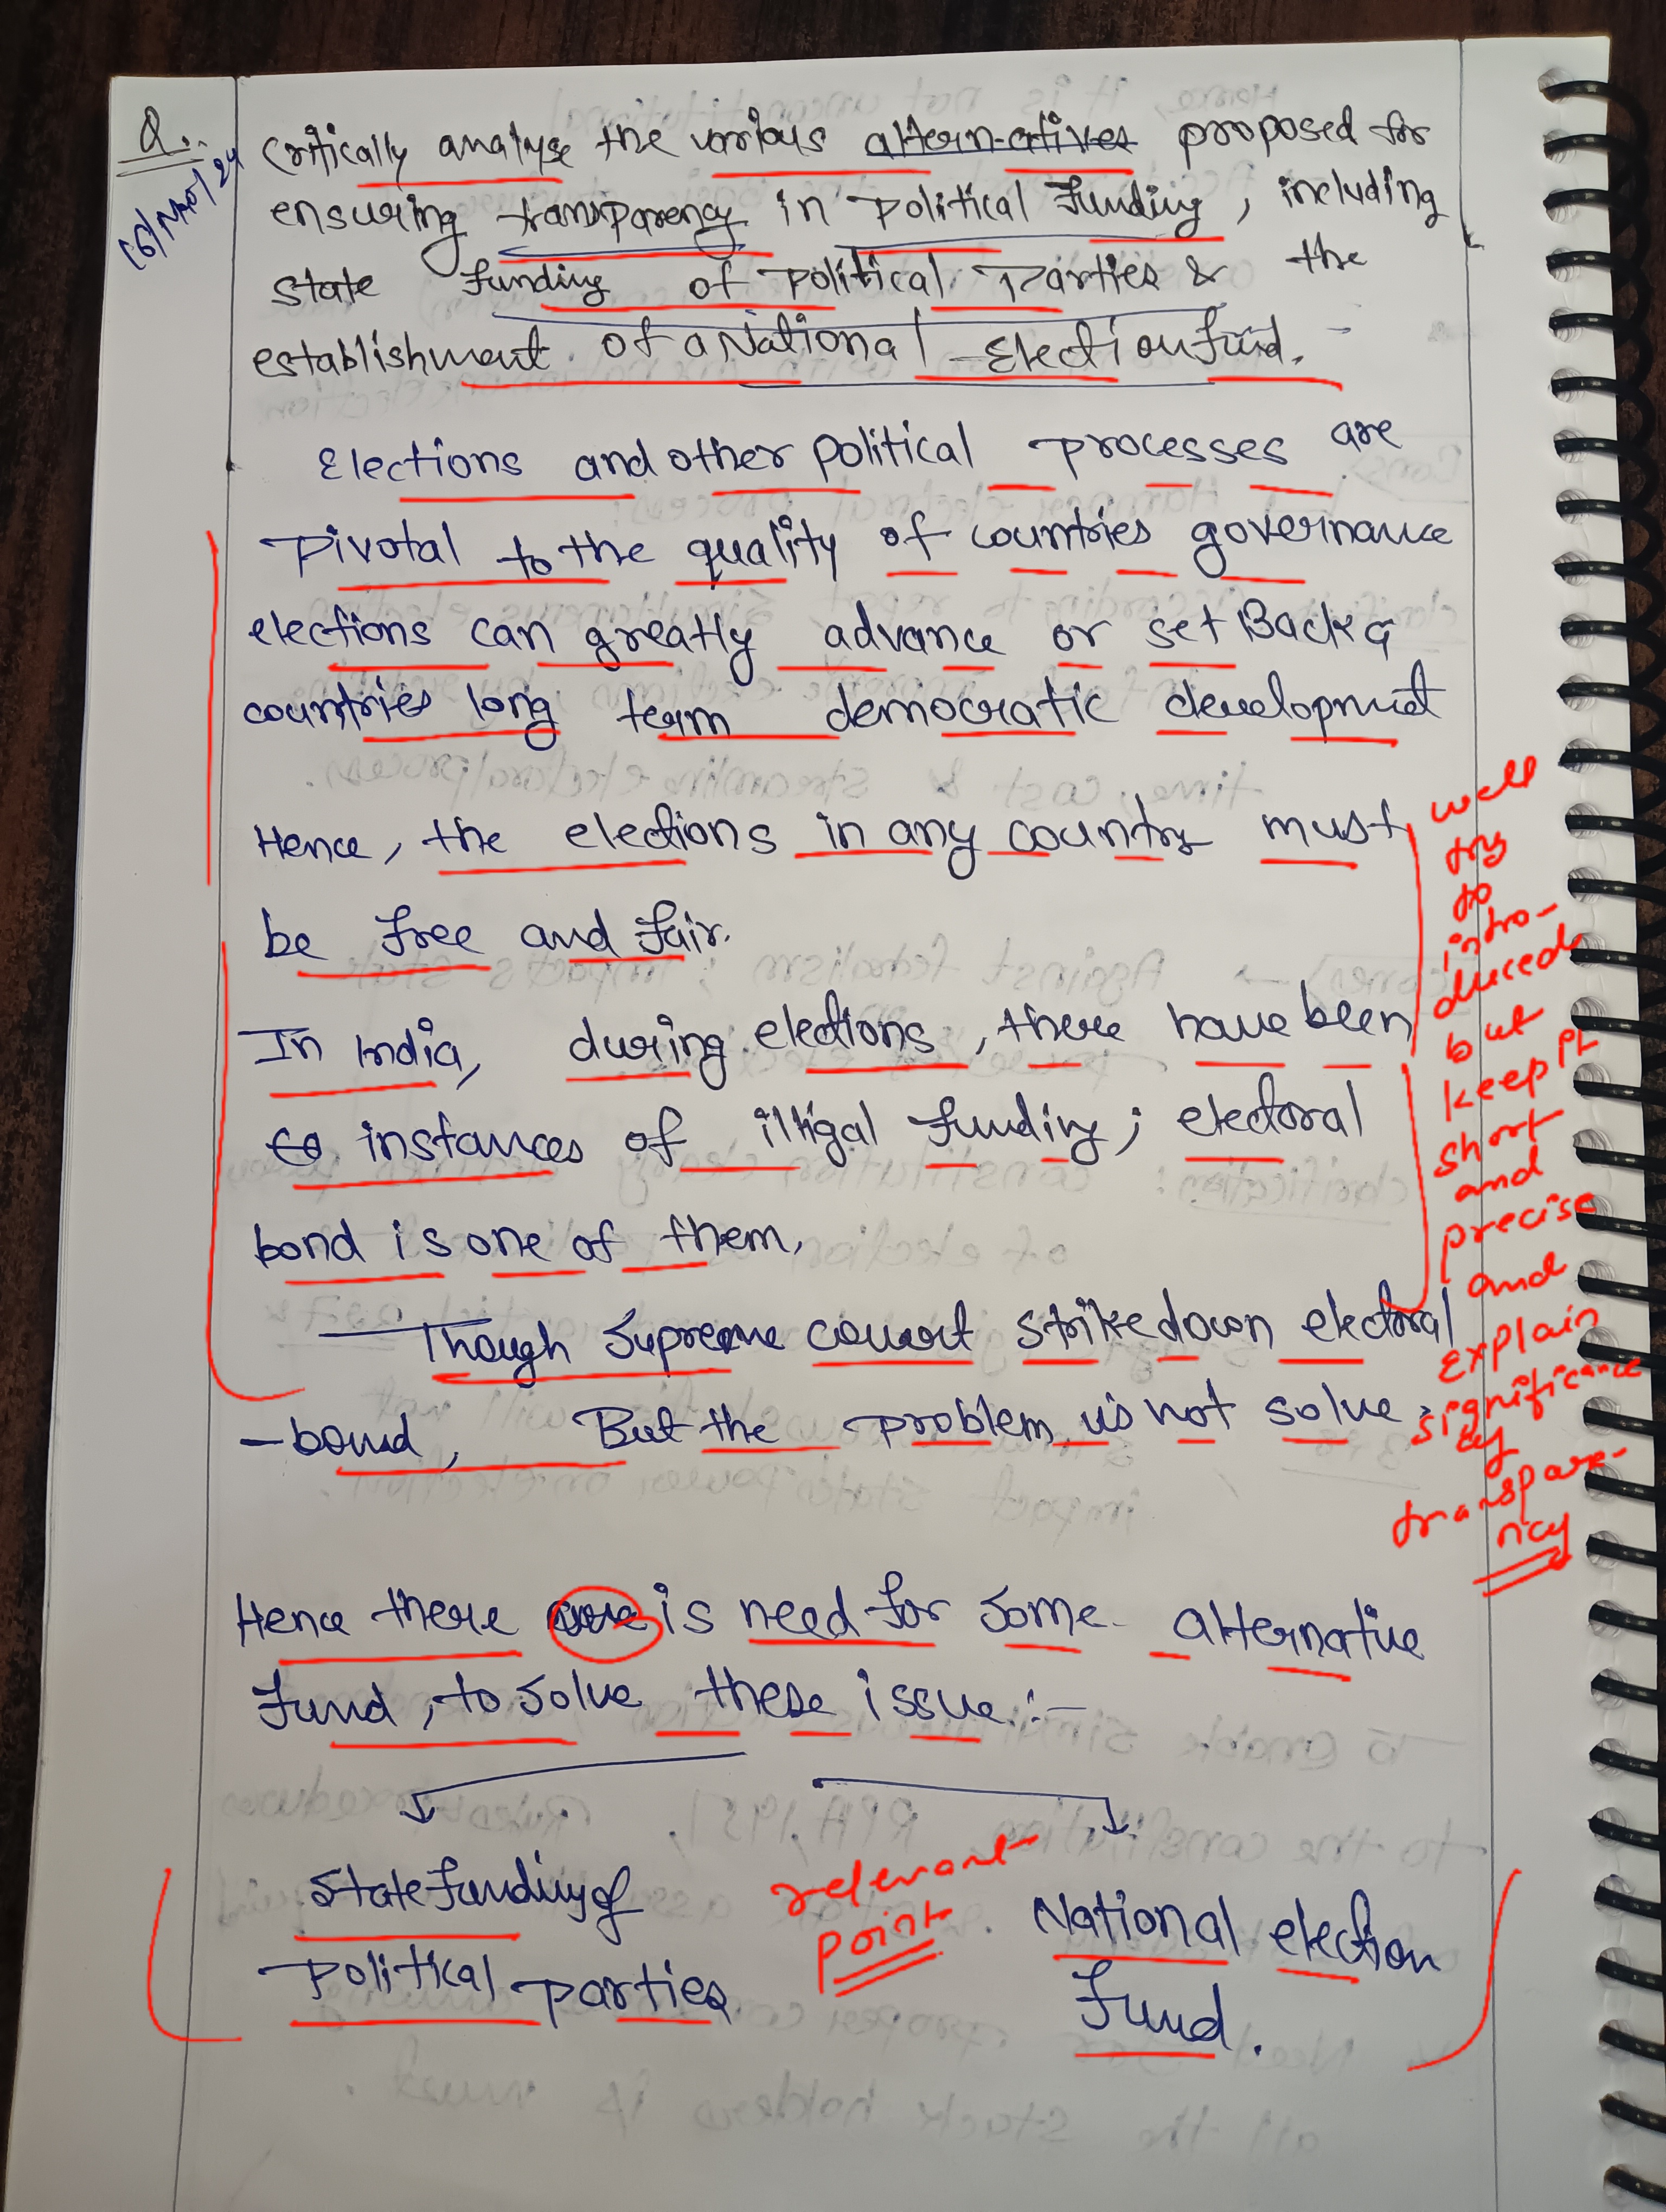 Q.. Critically analyse the various alternatives proposed for
16/Nov/24
ensuring transparency in political funding, including
state funding of political Parties & the
establishment of a National Election fund.
Elections and other political processes are
Pivotal to the quality of countries governance
elections can greatly advance or set Back a
countries long term democratic development
Hence, the elections in any country must
be free and fair.
In India, during elections, there have been
instances of illigal funding; electoral
bond is one of them,
— Though Supreme court strike down electoral
- bond, But the problem is not solve.
Hence there are is need for some alternative
fund, to solve these issue :-
State funding of
Political parties
National election
fund.
well
try
to
intro-
duced
but
keep it
short
and
precise
and
explain
significance
by
transpare-
ncy
relevant
point